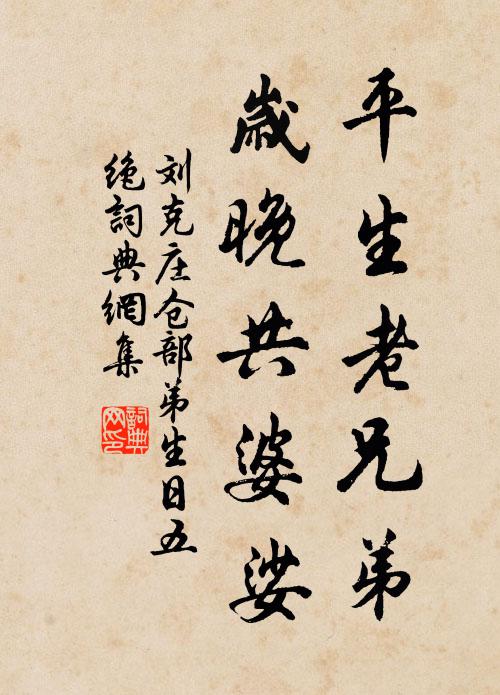 平生老兄弟
歲晚共婆娑
刘克庄仓部弟生日五
绝詞典網集
詞典
网印